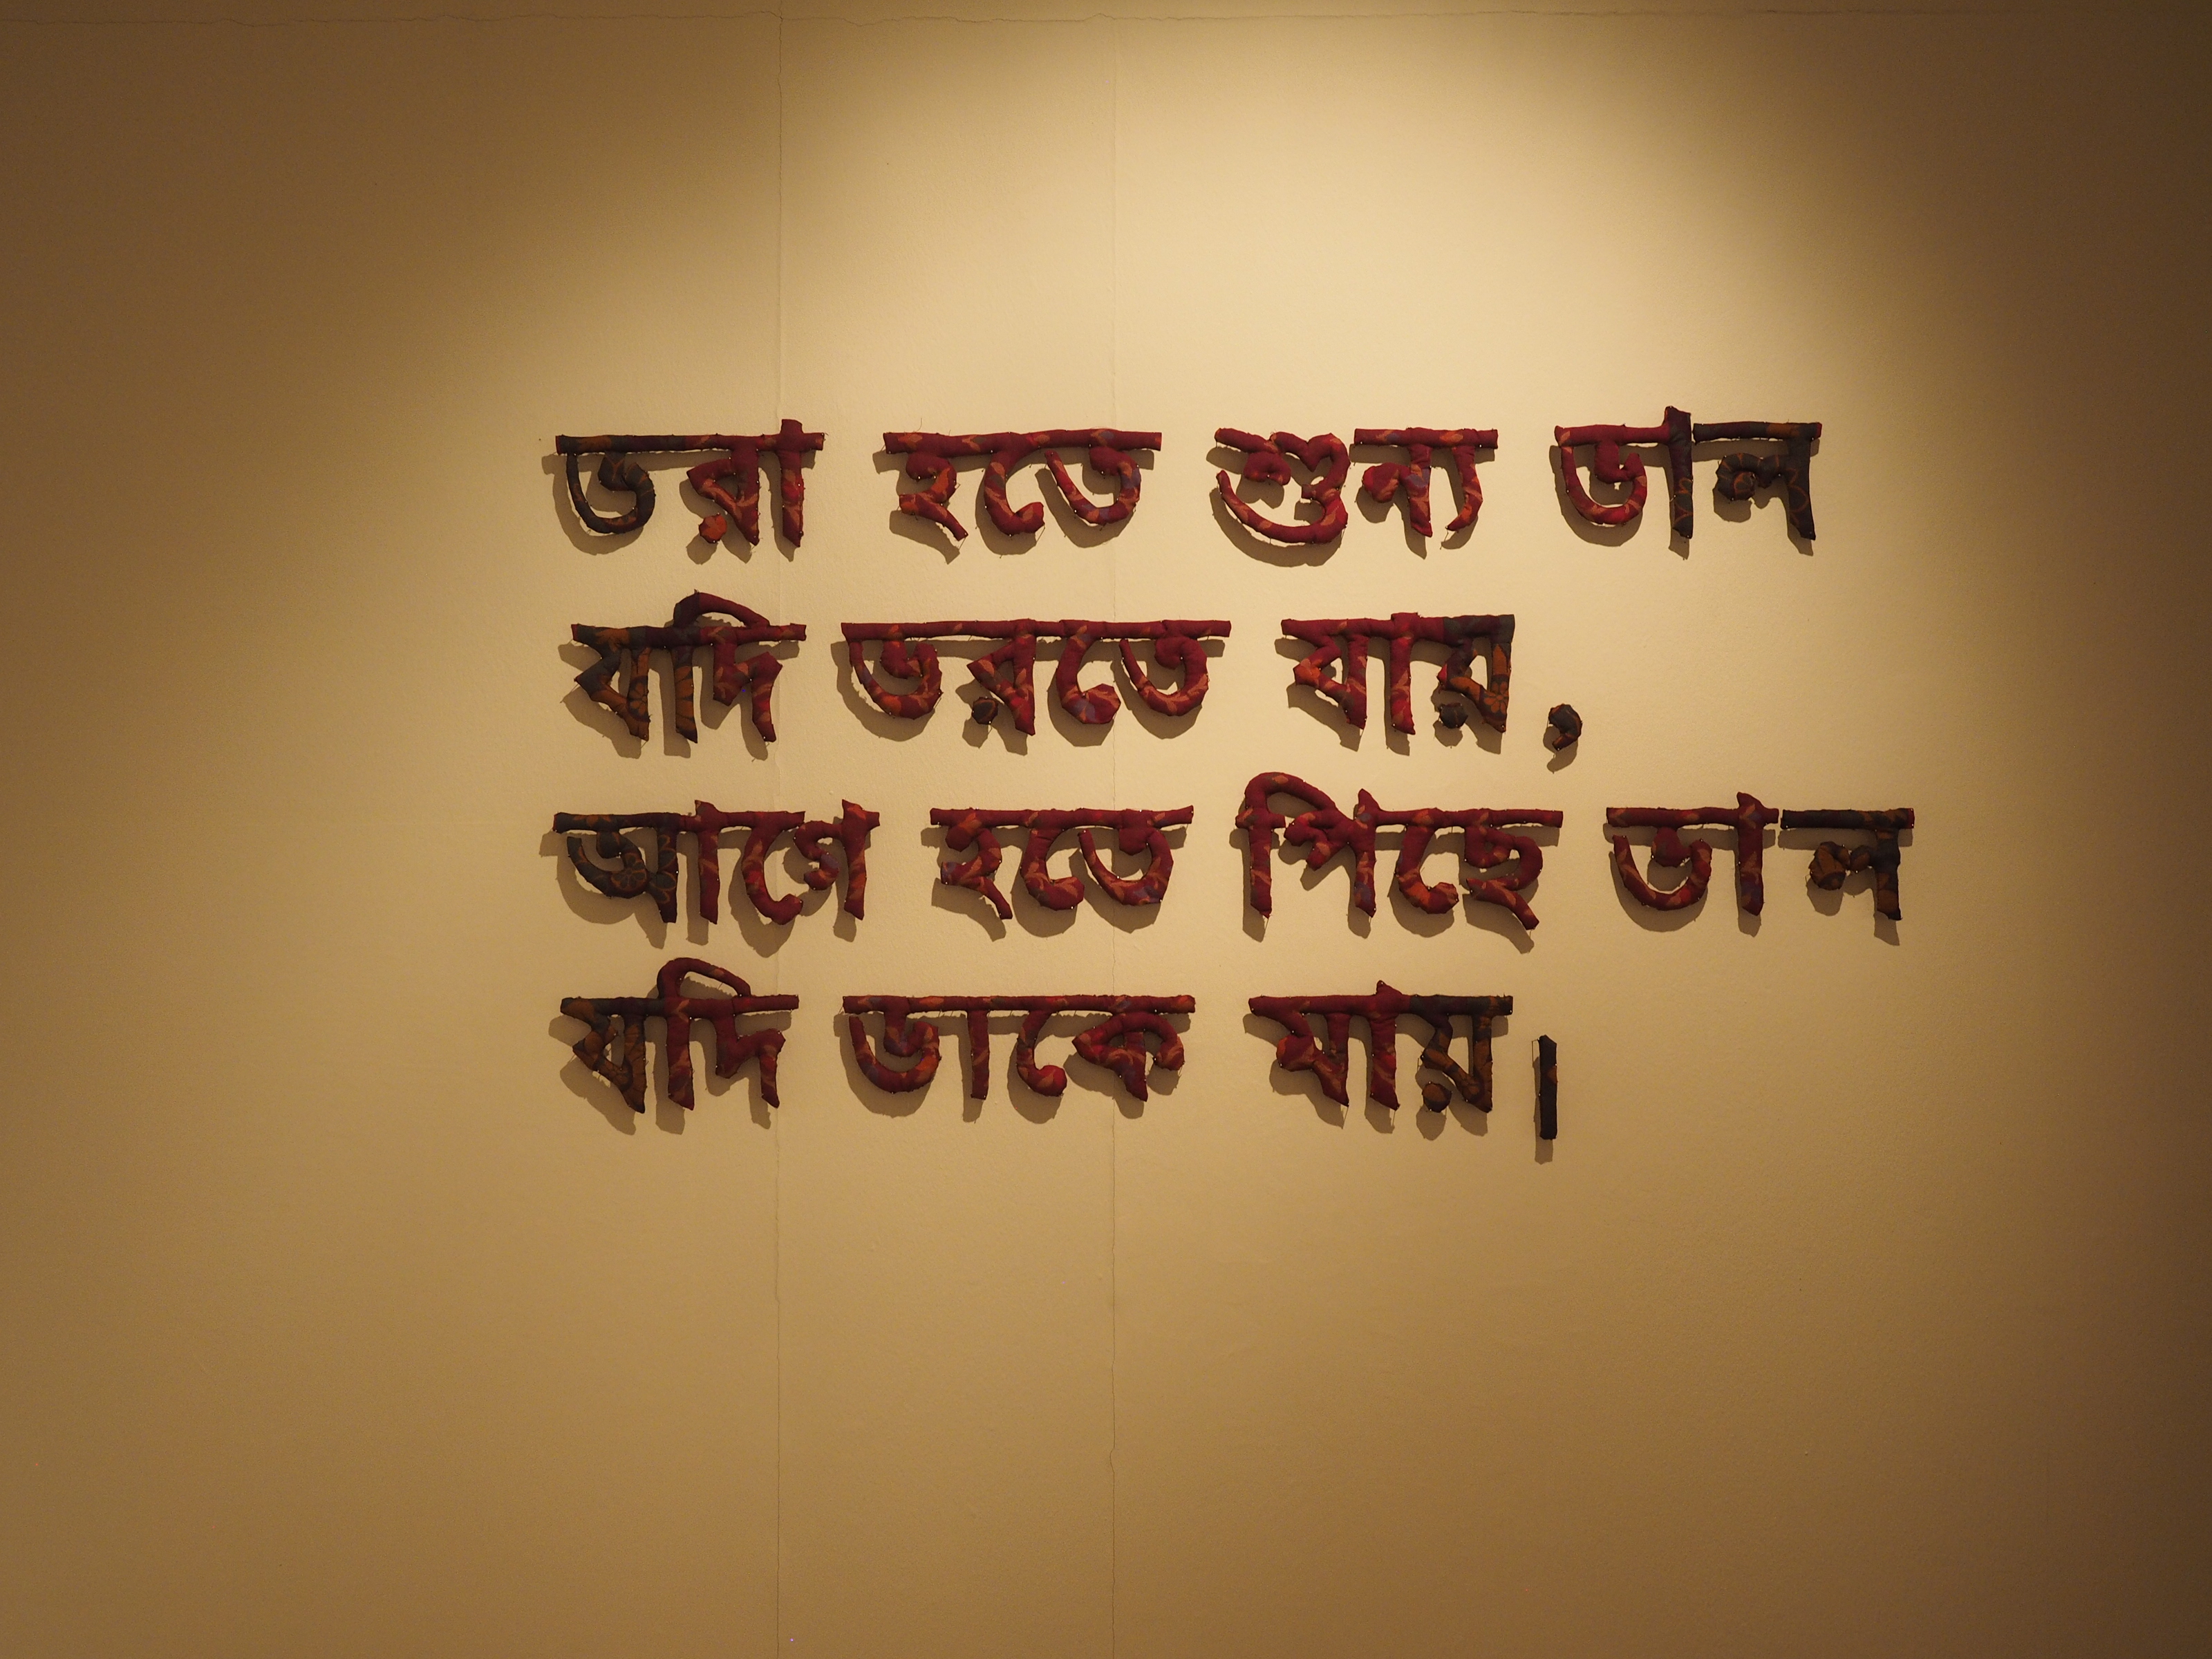 ভরা হতে শুন্য ভাল
যদি ভরতে যায়,
আগে হতে পিছে ভাল
যদি ডাকে মায়।